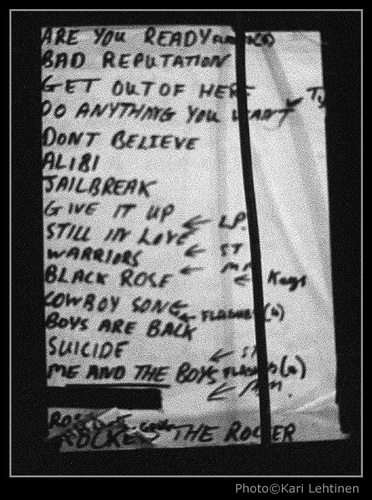 ARE YOU READY
BAD REPUTATION
GET OUT OF HERE
DO ANYTHING YOU WANT
DONT BELIEVE
ALIBI
JAILBREAK
GIVE IT UP
STILL IN LOVE ← L.P.
WARRIORS ← ST
BLACK ROSE ← Keys
COWBOY SONG
BOYS ARE BACK ← FLASHES(4)
SUICIDE ←
ME AND THE BOYS
THE ROCKER
Photo©Kari Lehtinen